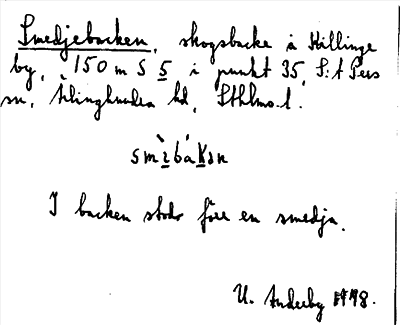 Smedjebacken, skogsbacke å Kállinge
by, 150 m S 5 i punkt 35, S:t Pers
sn, Ärlinghundra hd, Sthlms l.
smɛ̀băkən
I backen stodo förr en smedja.
U. Anderby 1948.